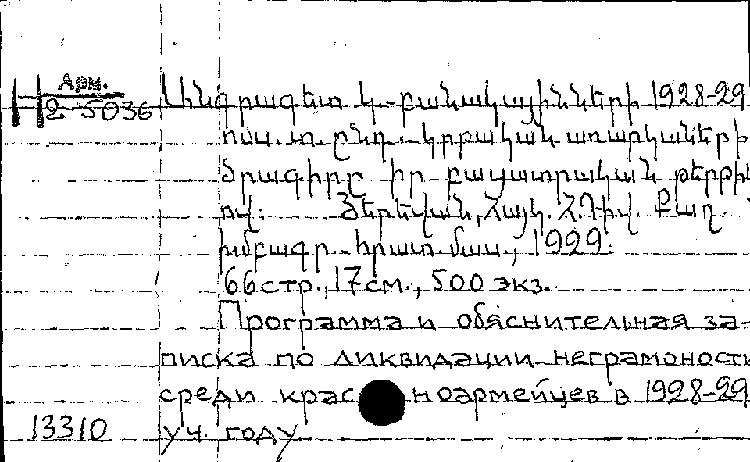 Арм.
2-5036
Անգրագետ կ-բանակայինների 1928-29
ուս. տ. ընդ. կրթական առարկաների
ծրագիրը իր բացատրական թերթի
ով: Յերեվան, Հայկ. Հ.Դիվ. Քաղ.
խմբագր-հրատ. մաս, 1929.
66 стр., 17 см., 500 экз.
Программа и обяснительная за-
писка по ликвидации неграмоности
среди крас ноармейцев в 1928-29
13310 уч. году